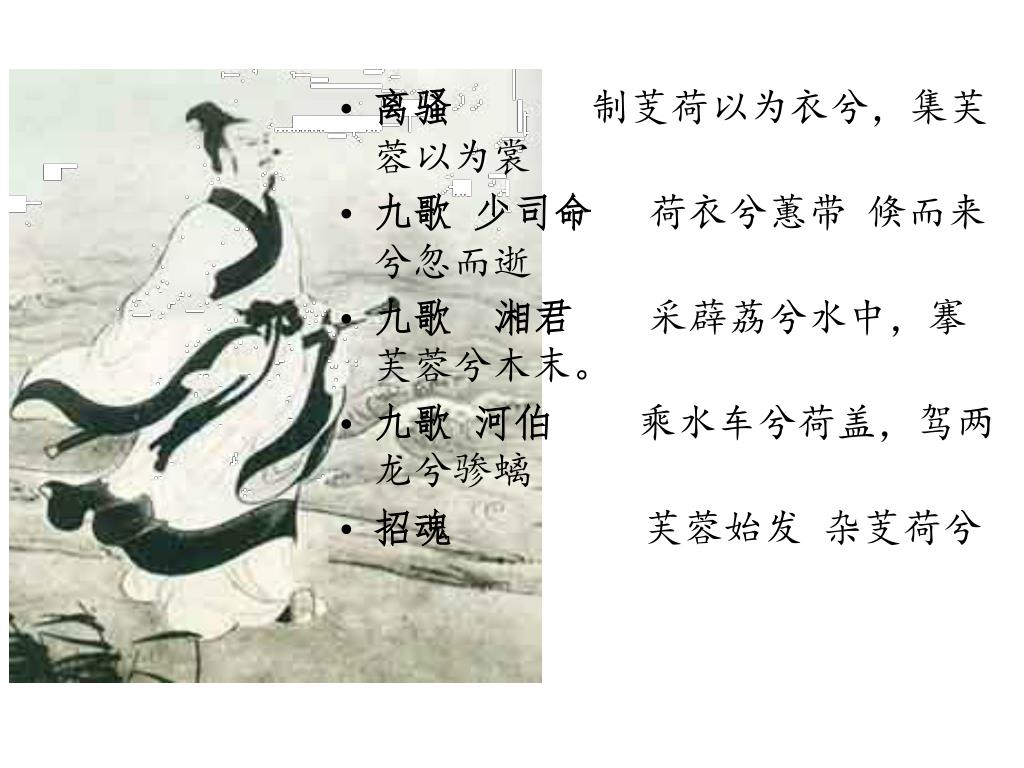 • 离骚 制芰荷以为衣兮，集芙
蓉以为裳
• 九歌 少司命 荷衣兮蕙带 倏而来
兮忽而逝
• 九歌 湘君 采薜荔兮水中，搴
芙蓉兮木末。
• 九歌 河伯 乘水车兮荷盖，驾两
龙兮骖螭
• 招魂 芙蓉始发 杂芰荷兮